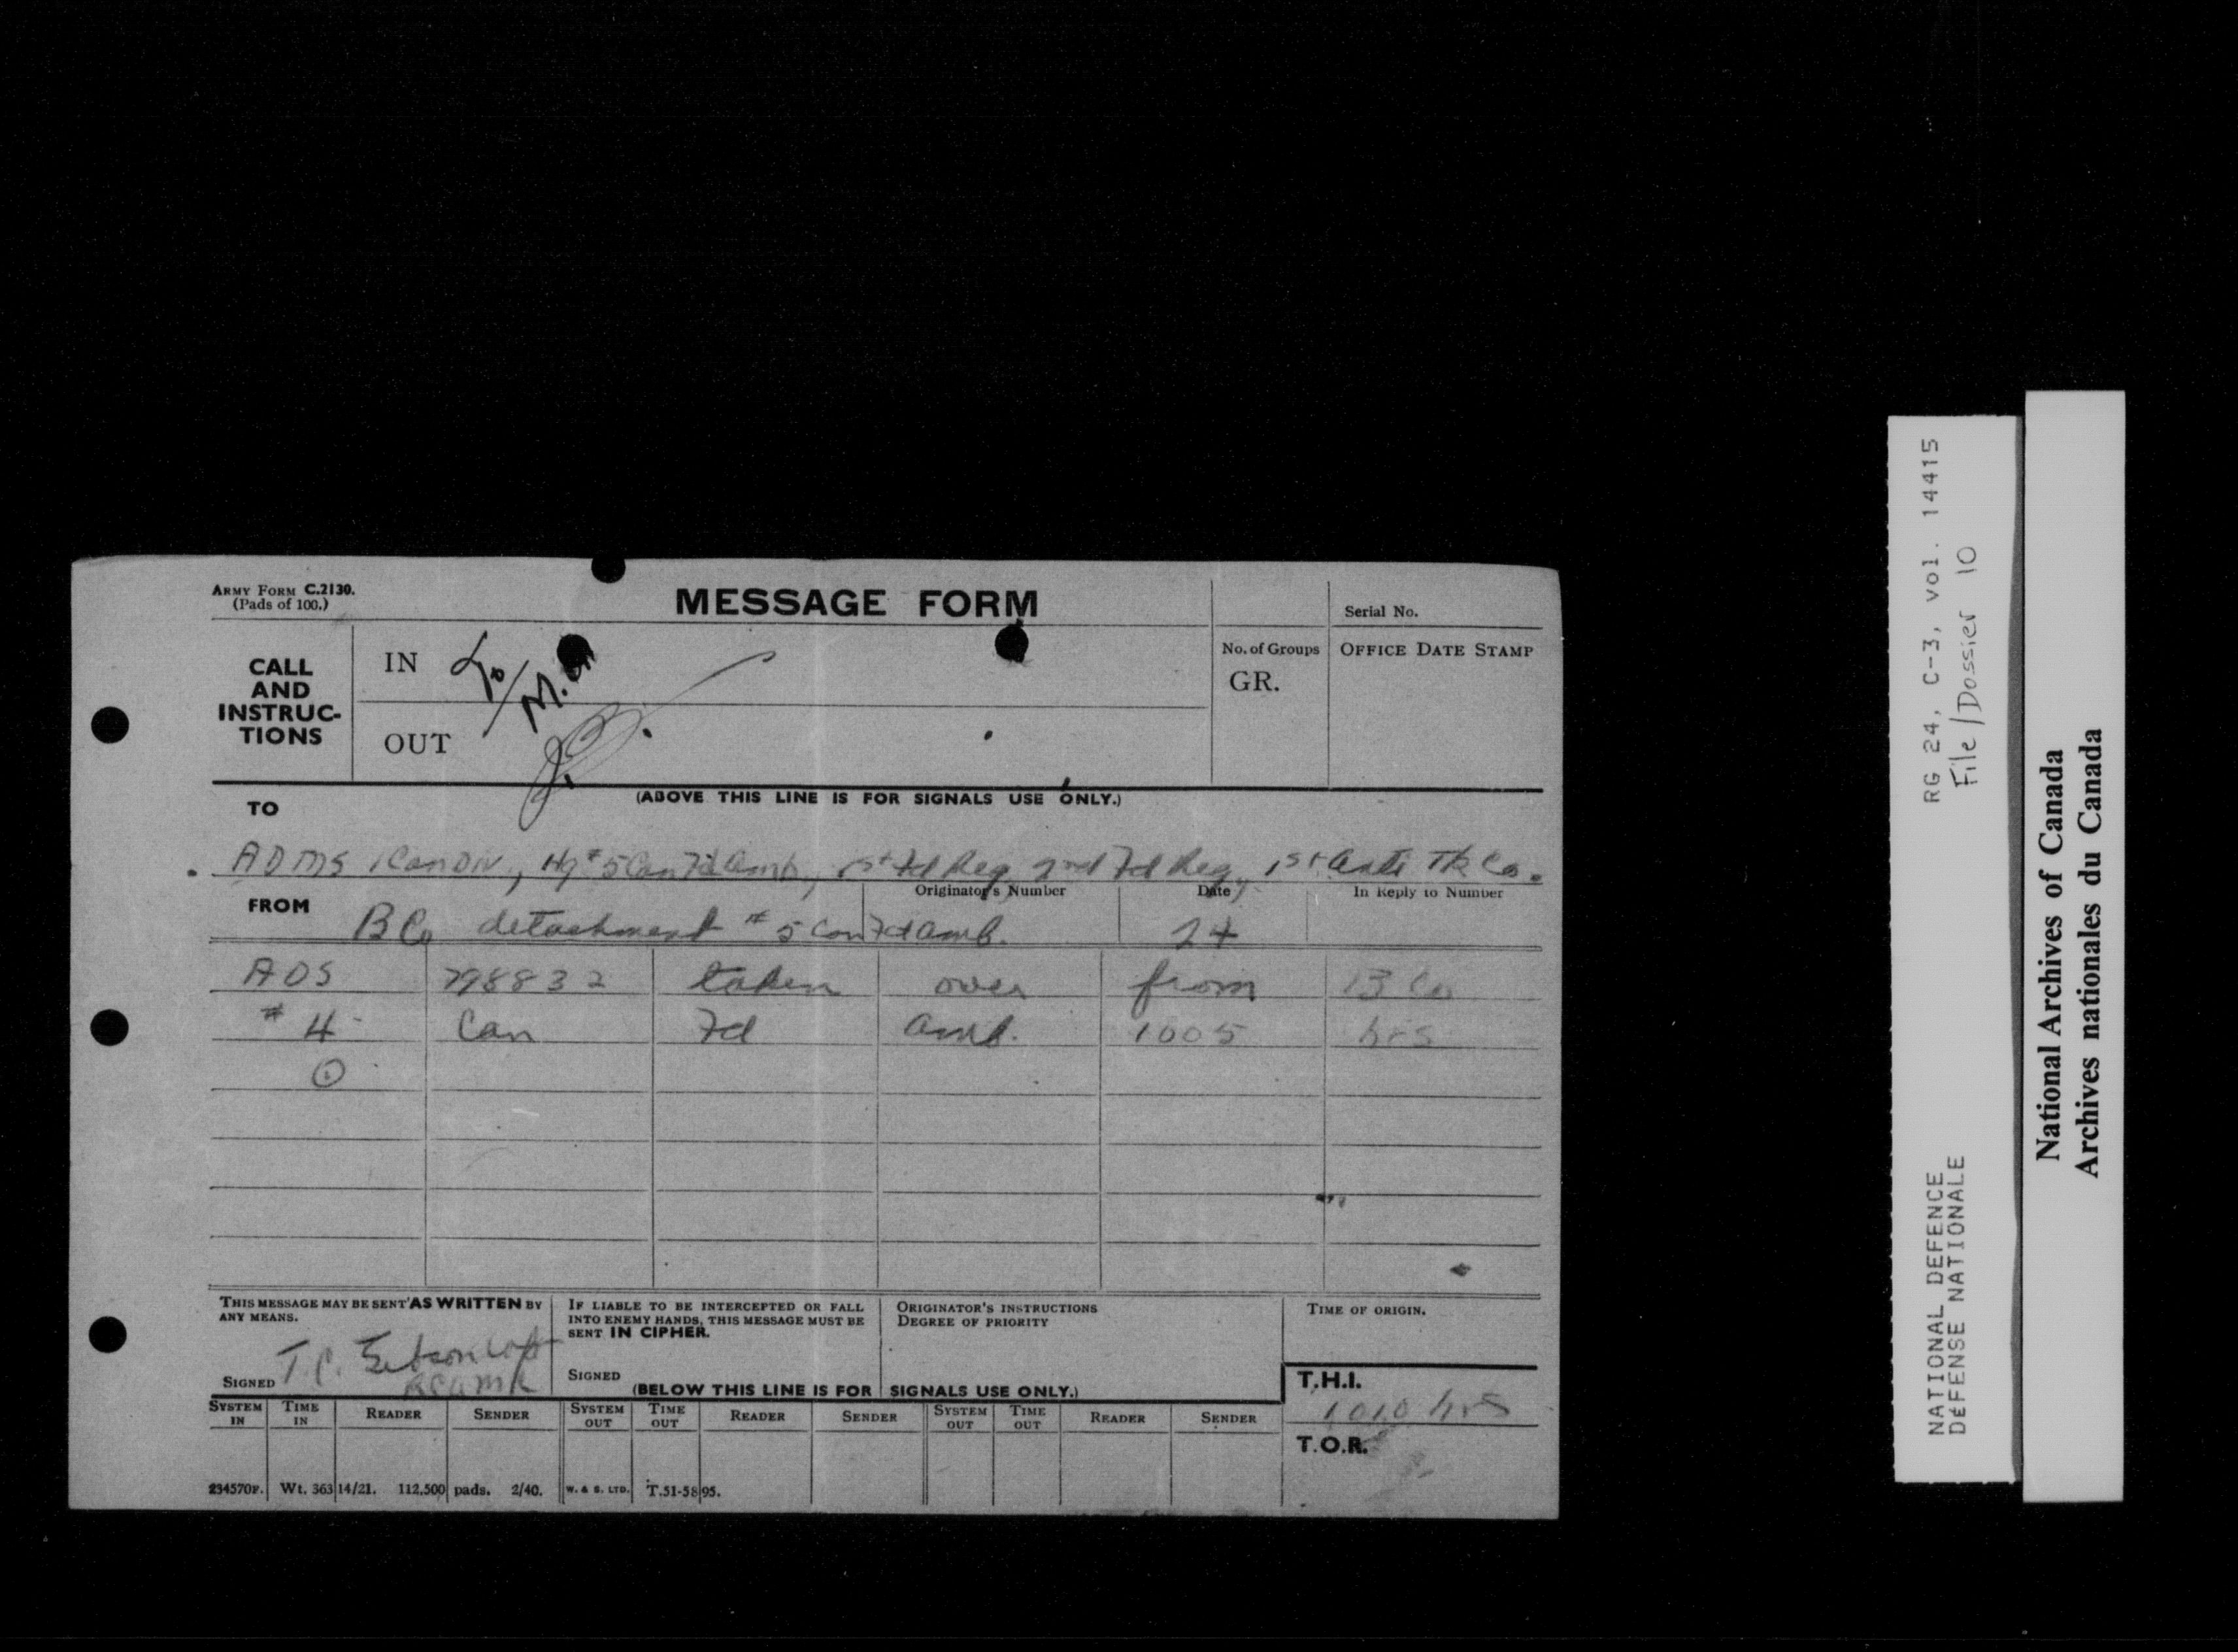 ARMY FORM C.2130.
(Pads of 100.)
MESSAGE FORM
Serial No.
CALL AND INSTRUC-TIONS
IN
OUT
No. of Groups
GR.
OFFICE DATE STAMP
(ABOVE THIS LINE IS FOR SIGNALS USE ONLY.)
TO
ADMS 1 Can Div, Hq # 5 Can Fd Amb, 1st Fd Reg, 2nd Fd Reg, 1st Anti Tk Co.
FROM
Originator's Number
Date
In Reply to Number
B Co detachment # 5 Can Fd Amb. 24
ADS 798832 taken over from B Co
# 4 Can Fd Amb. 1005 hrs
THIS MESSAGE MAY BE SENT AS WRITTEN BY ANY MEANS.
SIGNED T.C. RCAMC
IF LIABLE TO BE INTERCEPTED OR FALL INTO ENEMY HANDS, THIS MESSAGE MUST BE SENT IN CIPHER.
SIGNED
ORIGINATOR'S INSTRUCTIONS
DEGREE OF PRIORITY
TIME OF ORIGIN.
(BELOW THIS LINE IS FOR SIGNALS USE ONLY.)
T.H.I.
1010 hrs
T.O.R.
SYSTEM IN TIME IN READER SENDER SYSTEM OUT TIME OUT READER SENDER SYSTEM OUT TIME OUT READER SENDER
234570F. Wt. 36314/21. 112,500 pads. 2/40. W. & S. LTD. T.51-5895.
RG 24, C-3, vol. 14415
File/Dossier 10
NATIONAL DEFENCE
DÉFENSE NATIONALE
National Archives of Canada
Archives nationales du Canada